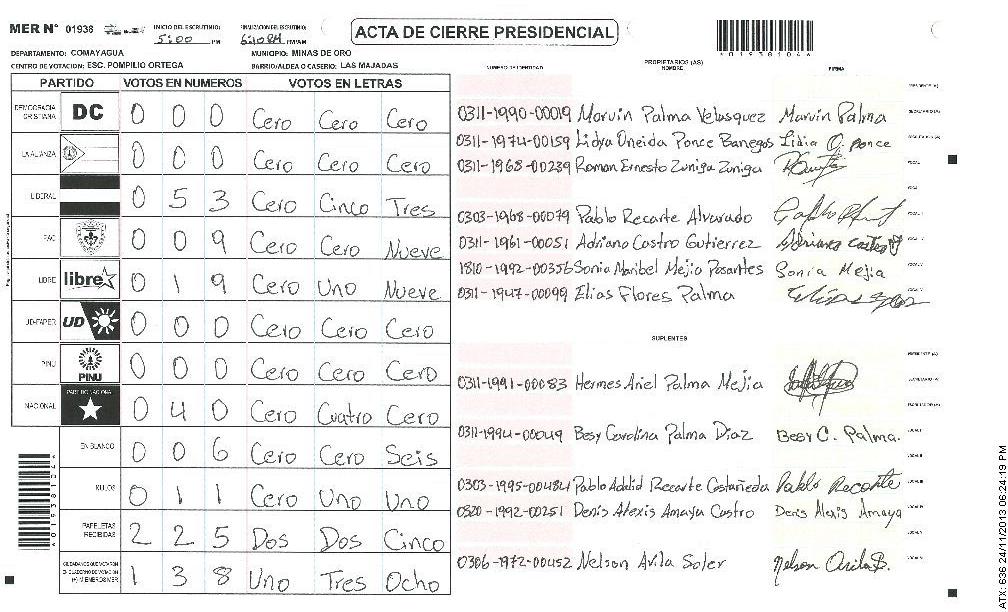 MER N° 01938
INICIO DEL ESCRUTINIO: 5:00 PM
FINALIZACION DEL ESCRUTINIO: PM/AM
ACTA DE CIERRE PRESIDENCIAL
*01938104*
DEPARTAMENTO: COMAYAGUA MUNICIPIO: MINAS DE ORO
CENTRO DE VOTACION: ESC. POMPILIO ORTEGA BARRIO/ALDEA O CASERIO: LAS MAJADAS
PARTIDO VOTOS EN NUMEROS VOTOS EN LETRAS
DEMOCRACIA CRISTIANA DC 0 0 0 Cero Cero Cero
LA ALIANZA 0 0 0 Cero Cero Cero
LIBERAL 0 5 3 Cero Cinco Tres
PAC 0 0 9 Cero Cero Nueve
LIBRE libre 0 1 9 Cero Uno Nueve
UD-FAPER UD 0 0 0 Cero Cero Cero
PINU PINU 0 0 0 Cero Cero Cero
NACIONAL PARTIDO NACIONAL 0 4 0 Cero Cuatro Cero
EN BLANCO 0 0 6 Cero Cero Seis
NULOS 0 1 1 Cero Uno Uno
PAPELETAS RECIBIDAS 2 2 5 Dos Dos Cinco
CIUDADANOS QUE VOTARON EN CUADERNO DE VOTACION (+) MIEMBROS MER 1 3 8 Uno Tres Ocho
*01938104*
NUMERO DE IDENTIDAD PROPIETARIOS (AS) NOMBRE FIRMA
0311-1990-00019 Marvin Palma Velasquez Marvin Palma
0311-1974-00159 Lidya Oneida Ponce Banegas Lidia O. Ponce
0311-1968-00239 Raman Ernesto Zuniga Zuniga
0303-1968-00079 Pablo Recarte Alvarado
0311-1961-00051 Adriano Castro Gutierrez
1810-1992-00356 Sonia Maribel Mejia Posantes Sonia Mejia
0311-1947-00099 Elias Flores Palma
SUPLENTES
0311-1991-00083 Hermes Ariel Palma Mejia
0311-1994-00049 Besy Carolina Palma Diaz Besy C. Palma.
0303-1995-00484 Pablo Adalid Recarte Castañeda Pablo Recarte
0320-1992-00251 Denis Alexis Amaya Castro Denis Alexis Amaya
0306-1972-00452 Nelson Avila Soler Nelson Avila S.
ATX: 636 24/11/2013 06:24:19 PM